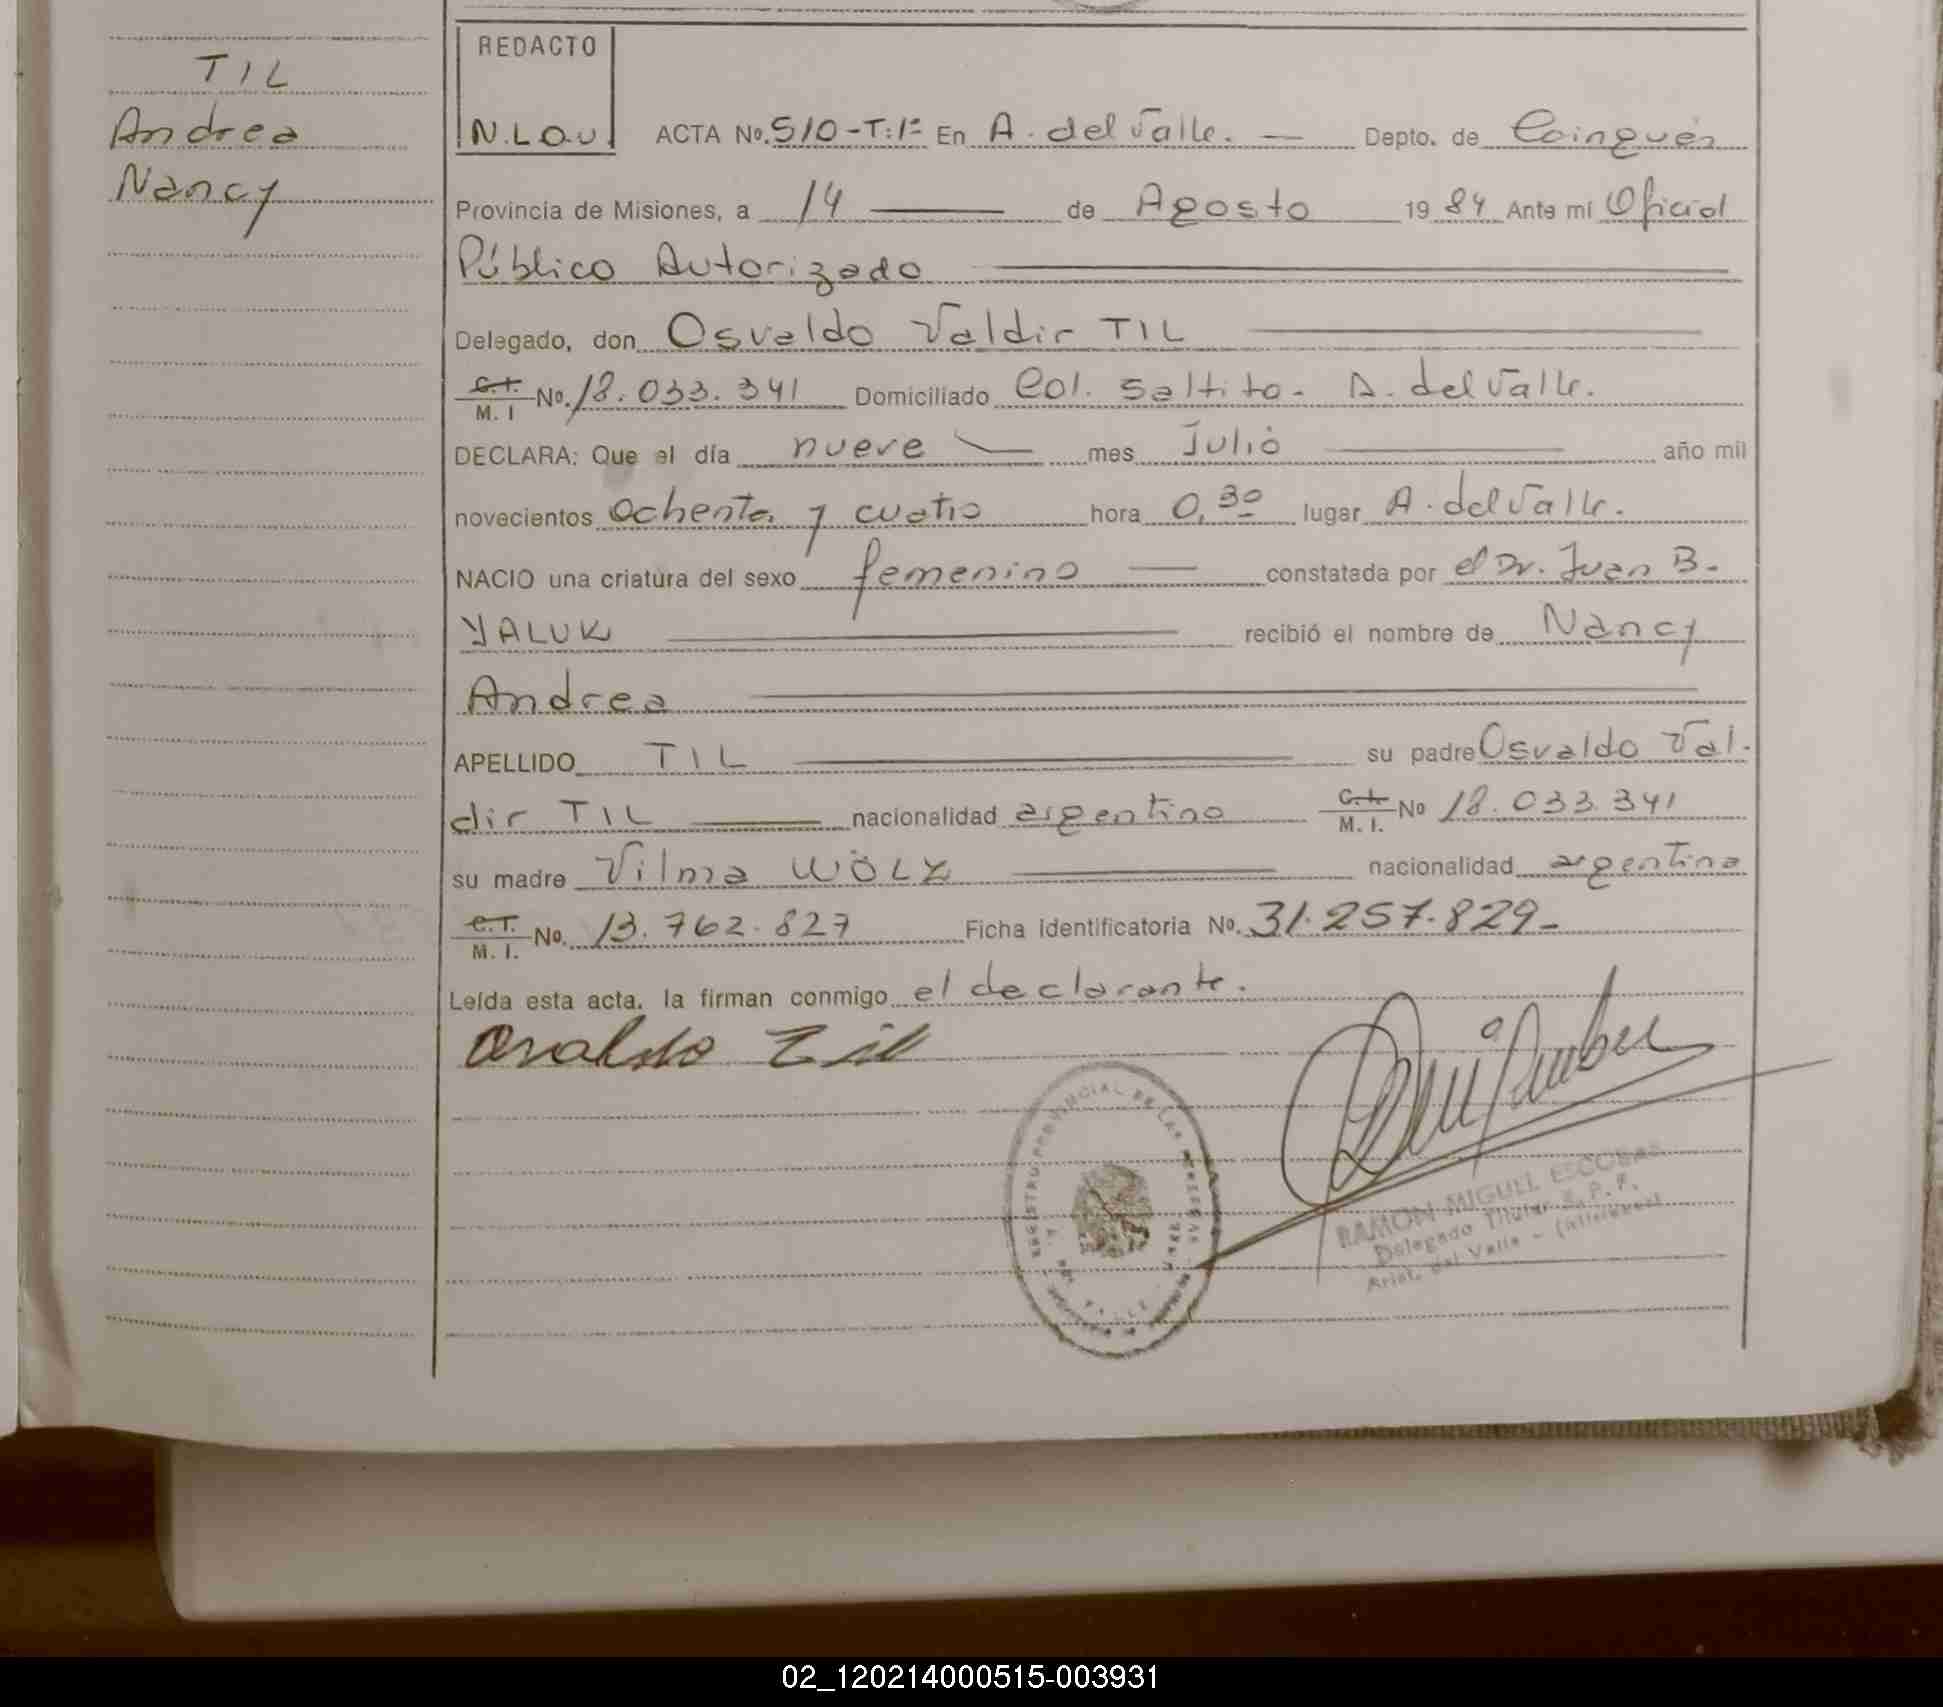 TIL
Andrea
Nancy
REDACTO
N.L.O.U.
ACTA No. 510-T:1º En A. del Valle. — Depto. de Cainguás
Provincia de Misiones, a 14 — de Agosto 1984 Ante mí Oficial
Público Autorizado
Delegado, don Osvaldo Valdir TIL
C.I. M. I No. 18.033.341 Domiciliado Col. Saltito - A. del Valle.
DECLARA: Que el día nueve — mes Julio — año mil
novecientos ochenta y cuatro hora 0,30 lugar A. del Valle.
NACIO una criatura del sexo femenino — constatada por el Dr. Juan B.
YALUK — recibió el nombre de Nancy
Andrea
APELLIDO TIL — su padre Osvaldo Val-
dir TIL — nacionalidad argentino C.I. M. I. No 18.033.341
su madre Vilma WÖLZ — nacionalidad argentina
C.I. M. I. No. 13.762.827 Ficha identificatoria No. 31.257.829-
Leída esta acta, la firman conmigo el declarante.
Osvaldo Til
REGISTRO PROVINCIAL DE LAS PERSONAS
RAMON MIGUEL ESCOBAR
Delegado Titular R. P. P.
Arist. del Valle - (Misiones)
02_120214000515-003931